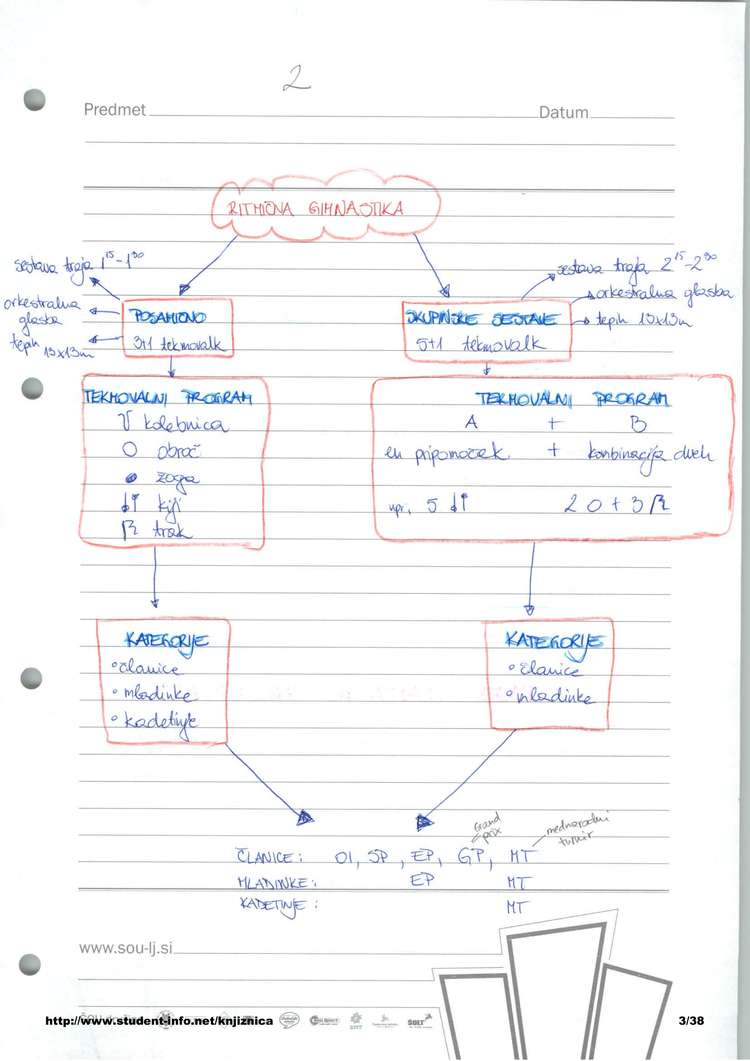 2
Predmet
Datum
RITMIČNA GIMNASTIKA
sestava traja 1¹⁵-1³⁰
orkestralna
glasba
tepih 13x13m
POSAMIČNO
3+1 tekmovalk
sestava traja 2¹⁵-2³⁰
orkestralna glasba
tepih 13x13m
SKUPINSKE SESTAVE
5+1 tekmovalk
TEKMOVALNI PROGRAM
kolebnica
obroč
žoga
kiji
trak
TEKMOVALNI PROGRAM
A + B
en pripomoček + kombinacija dveh
npr. 5
2 O + 3
KATEGORIJE
° članice
° mladinke
° kadetinje
KATEGORIJE
° članice
° mladinke
Grand
prix
mednarodni
turnir
ČLANICE: OI, SP, EP, GP, MT
MLADINKE: EP MT
KADETINJE: MT
www.sou-lj.si
http://www.student-info.net/knjiznica
3/38